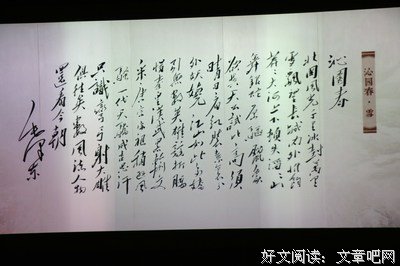 沁园春·雪
沁園春
北国風光千里冰封万里
雪飘望长城内外惟馀
莽莽大河上下顿失滔滔山
舞银蛇原驰蜡象
欲与天公试比高须
晴日看红装素裹分
外妖娆江山如此多娇
引无数英雄竞折腰
惜秦皇汉武略输文
采唐宗宋祖稍逊风
骚一代天骄成吉思汗
只識弯弓射大雕
俱往矣数风流人物
還看今朝
毛泽东
好文阅读：文章吧网